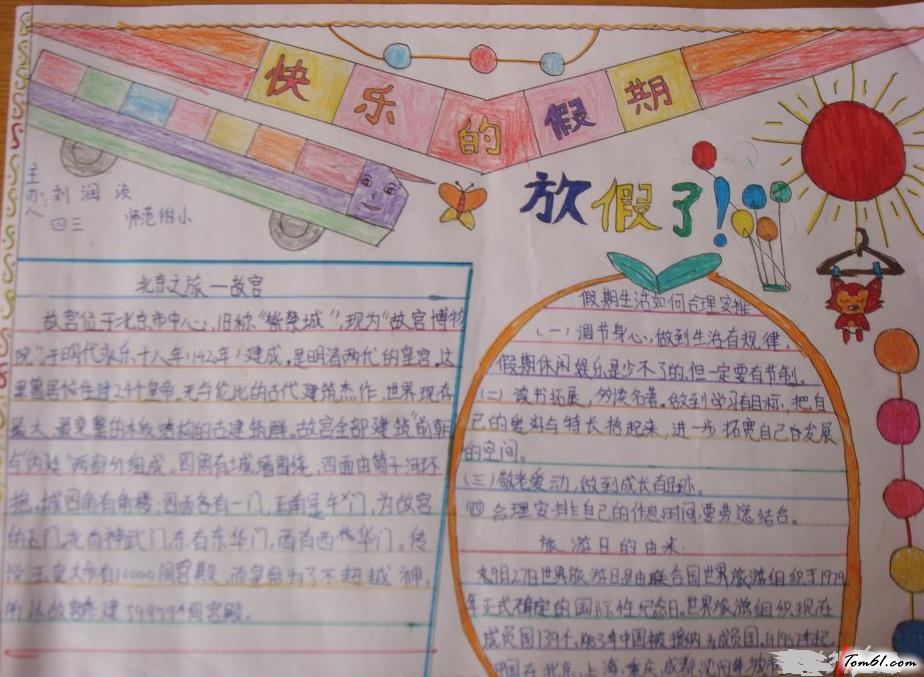 快乐的假期
放假了!
主办人:刘润
四三 师范附小
北京之旅—故宫
故宫位于北京市中心,旧称"紫禁城",现为"故宫博物
院",于明代永乐十八年(1420年)建成,是明清两代的皇宫,这
里曾居住过24个皇帝,无与伦比的古代建筑杰作,世界现存
最大、最完整的木质结构的古建筑群。故宫全部建筑"前朝
与"内廷"两部分组成。四周有城墙围绕,四面由筒子河环
抱,城四角有角楼,四面各有一门,正南是午门,为故宫
的正门,北有神武门,东有东华门,西有西华门。传
说玉皇大帝有10000间宫殿,而皇帝为了不超越神,
所以故宫修建了9999间宫殿。
假期生活如何合理安排
(一)调节身心,做到生活有规律,
假期休闲娱乐是少不了的,但一定要有节制。
(二)读书拓展,多读名著。做到学习有目标,把自
己的爱好与特长拾起来,进一步拓宽自己的发展
的空间。
(三)敬老爱动,做到成长有足迹。
四 合理安排自己的作息时间,要劳逸结合。
旅游日的由来
9月27日世界旅游日是由联合国世界旅游组织于1979
年正式确定的国际性纪念日。世界旅游组织现在
成员国139个,1983年中国被接纳为成员国,自
国在北京,上海,重庆,成都,沈阳
Tom61.com